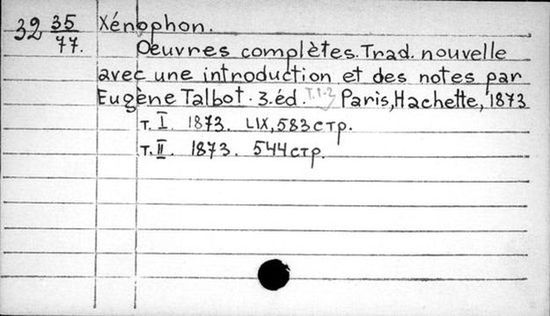 32 35/77. Xénophon.
Oeuvres complètes. Trad. nouvelle
avec une introduction et des notes par
Eugène Talbot. 3.éd. T.1-2 Paris, Hachette, 1873
т. I. 1873. LIX, 583 стр.
т. II. 1873. 544 стр.